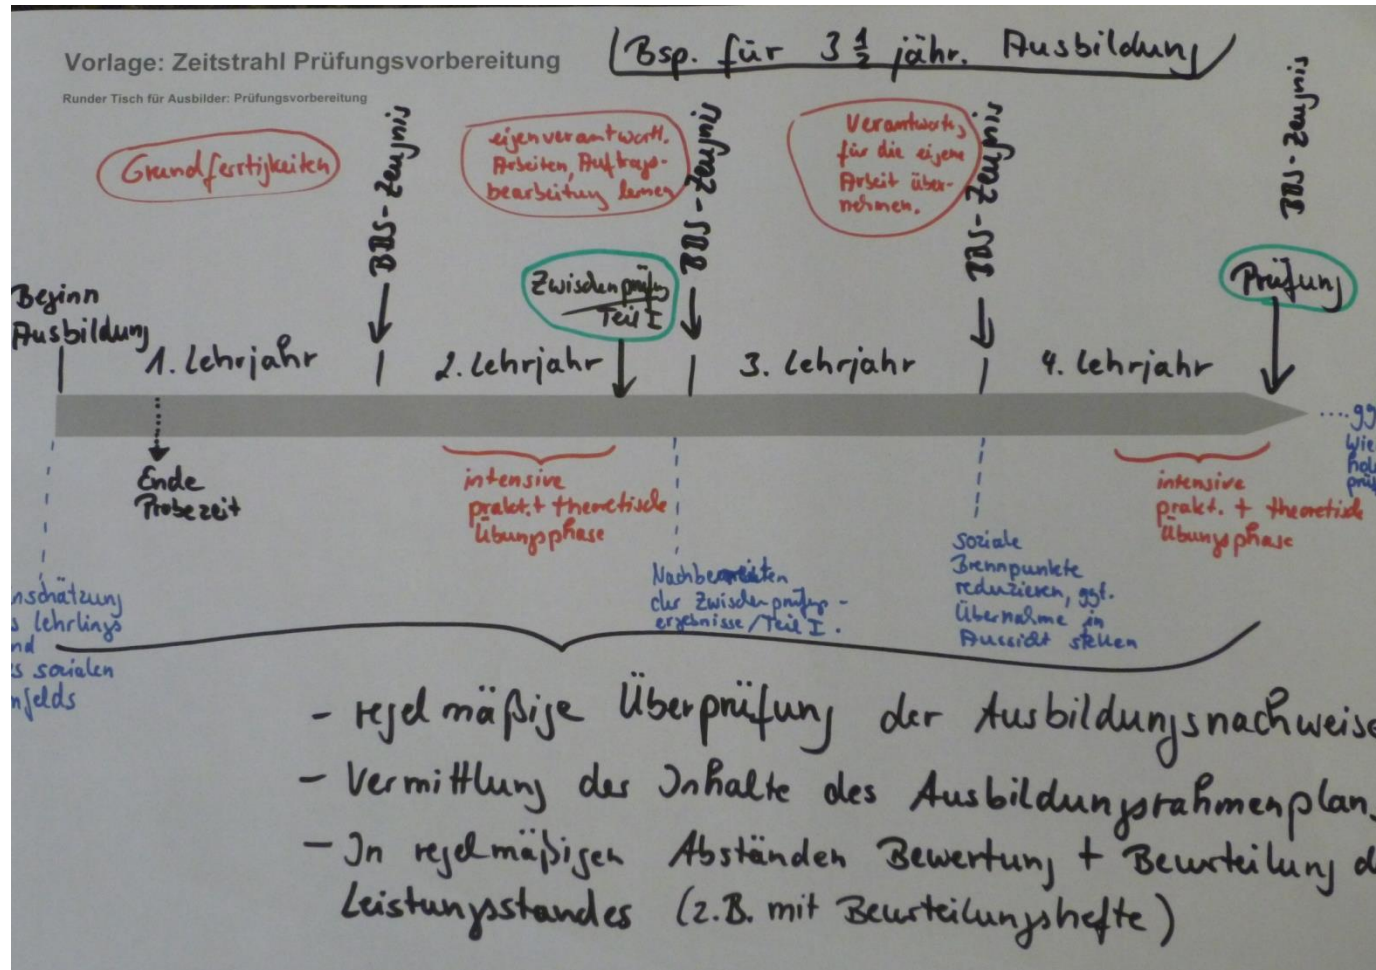 Vorlage: Zeitstrahl Prüfungsvorbereitung
Bsp. für 3 ½ jähr. Ausbildung
Runder Tisch für Ausbilder: Prüfungsvorbereitung
Grundfertigkeiten
BBS-Zeugnis
eigenverantwortl.
Arbeiten, Auftrags-
bearbeitung lernen
BBS-Zeugnis
Verantwortg
für die eigene
Arbeit über-
nehmen.
BBS-Zeugnis
BBS-Zeugnis
Beginn
Ausbildung
Zwischenprüfung
Teil I
Prüfung
1. Lehrjahr
2. Lehrjahr
3. Lehrjahr
4. Lehrjahr
Ende
Probezeit
intensive
prakt. + theoretische
Übungsphase
intensive
prakt. + theoretische
Übungsphase
gg
Wie
hol
prüf
nschätzung
s Lehrlings
nd
s sozialen
nfelds
Nachbereiten
der Zwischenprüfungs-
ergebnisse/Teil I.
soziale
Brennpunkte
reduzieren, ggf.
Übernahme in
Aussicht stellen
- regelmäßige Überprüfung der Ausbildungsnachweise
- Vermittlung der Inhalte des Ausbildungsrahmenplan
- In regelmäßigen Abständen Bewertung + Beurteilung d
Leistungsstandes (z.B. mit Beurteilungshefte)